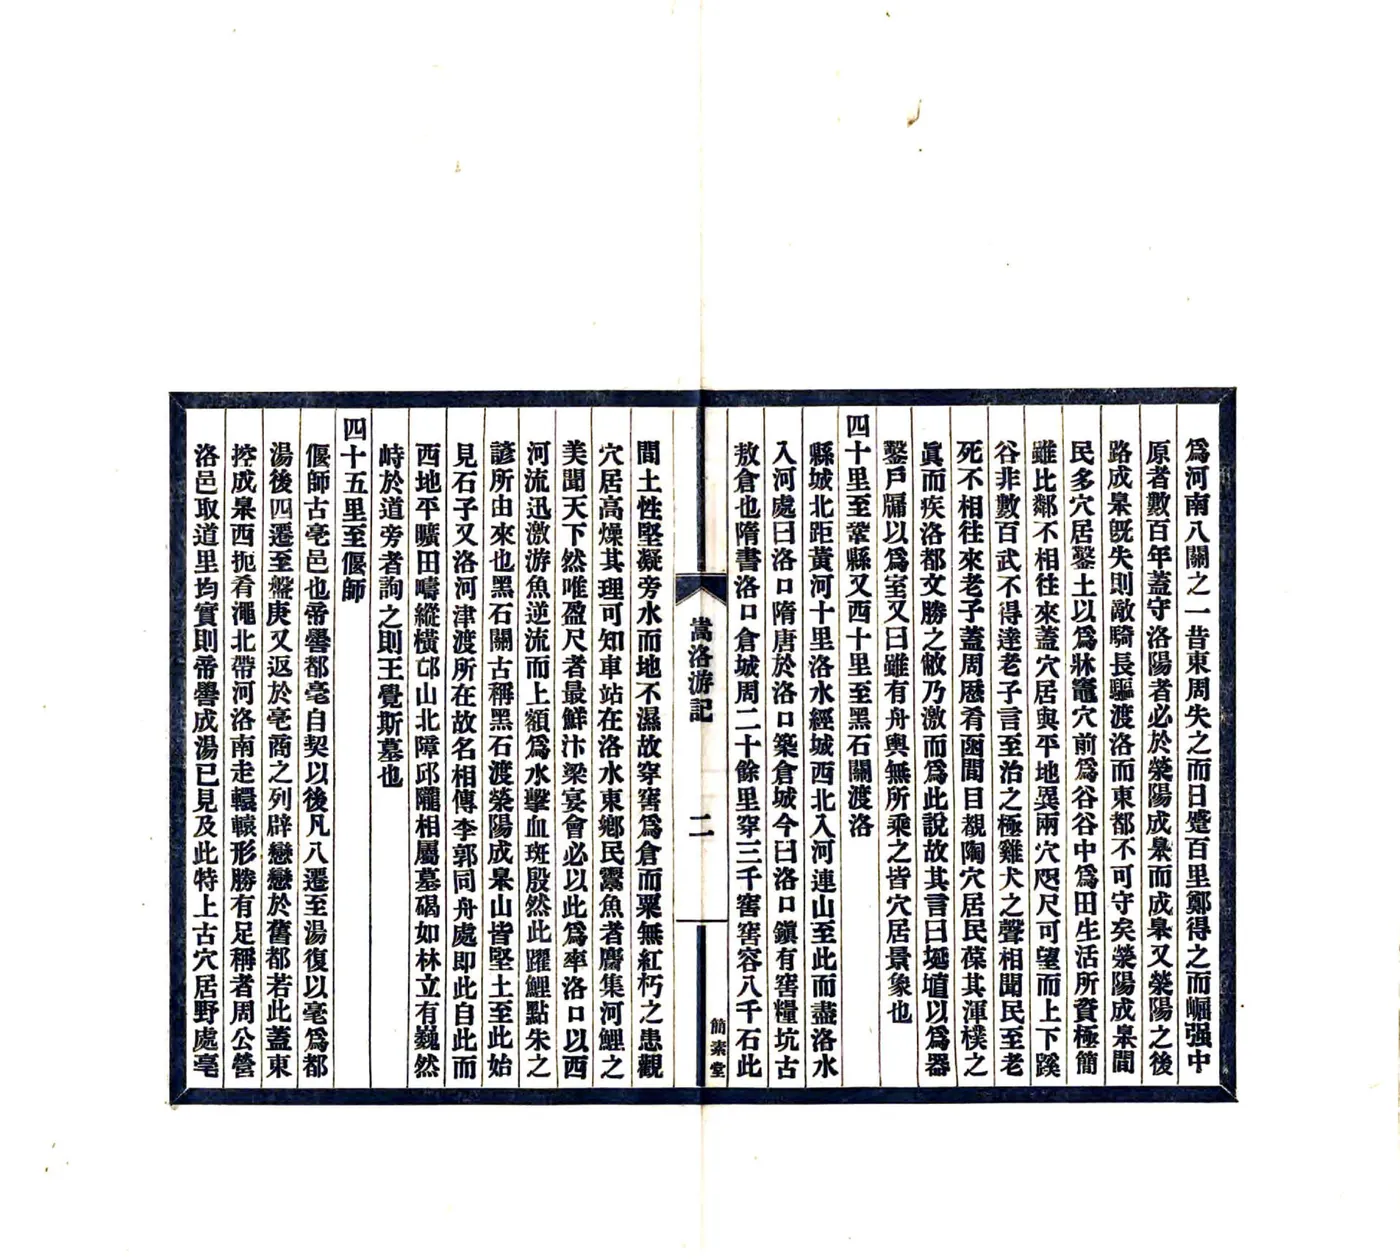 爲河南八關之一昔東周失之而日蹙百里鄭得之而崛强中
原者數百年蓋守洛陽者必於滎陽成皋而成皋又滎陽之後
路成皋旣失則敵騎長驅渡洛而東都不可守矣滎陽成皋間
民多穴居鑿土以爲牀竈穴前爲谷谷中爲田生活所資極簡
雖比鄰不相往來蓋穴居與平地異兩穴咫尺可望而上下蹊
谷非數百武不得達老子言至治之極雞犬之聲相聞民至老
死不相往來老子蓋周歷肴函間目覩陶穴居民葆其渾樸之
眞而疾洛都文勝之敝乃激而爲此說故其言曰埏埴以爲器
鑿戶牖以爲室又曰雖有舟輿無所乘之皆穴居景象也
四十里至鞏縣又西十里至黑石關渡洛
縣城北距黃河十里洛水經城西北入河連山至此而盡洛水
入河處曰洛口隋唐於洛口築倉城今曰洛口鎭有窖糧坑古
敖倉也隋書洛口倉城周二十餘里穿三千窖窖容八千石此
嵩洛游記
二
簡素堂
間土性堅凝旁水而地不濕故穿窖爲倉而粟無紅朽之患觀
穴居高燥其理可知車站在洛水東鄕民鬻魚者麕集河鯉之
美聞天下然唯盈尺者最鮮汴梁宴會必以此爲率洛口以西
河流迅激游魚逆流而上額爲水擊血斑殷然此躍鯉點朱之
諺所由來也黑石關古稱黑石渡滎陽成皋山皆堅土至此始
見石子又洛河津渡所在故名相傳李郭同舟處即此自此而
西地平曠田疇縱橫邙山北障邱隴相屬墓碣如林立有巍然
峙於道旁者詢之則王覺斯墓也
四十五里至偃師
偃師古亳邑也帝嚳都亳自契以後凡八遷至湯復以亳爲都
湯後四遷至盤庚又返於亳商之列辟戀戀於舊都若此蓋東
控成皋西扼肴澠北帶河洛南走轘轅形勝有足稱者周公營
洛邑取道里均實則帝嚳成湯已見及此特上古穴居野處亳